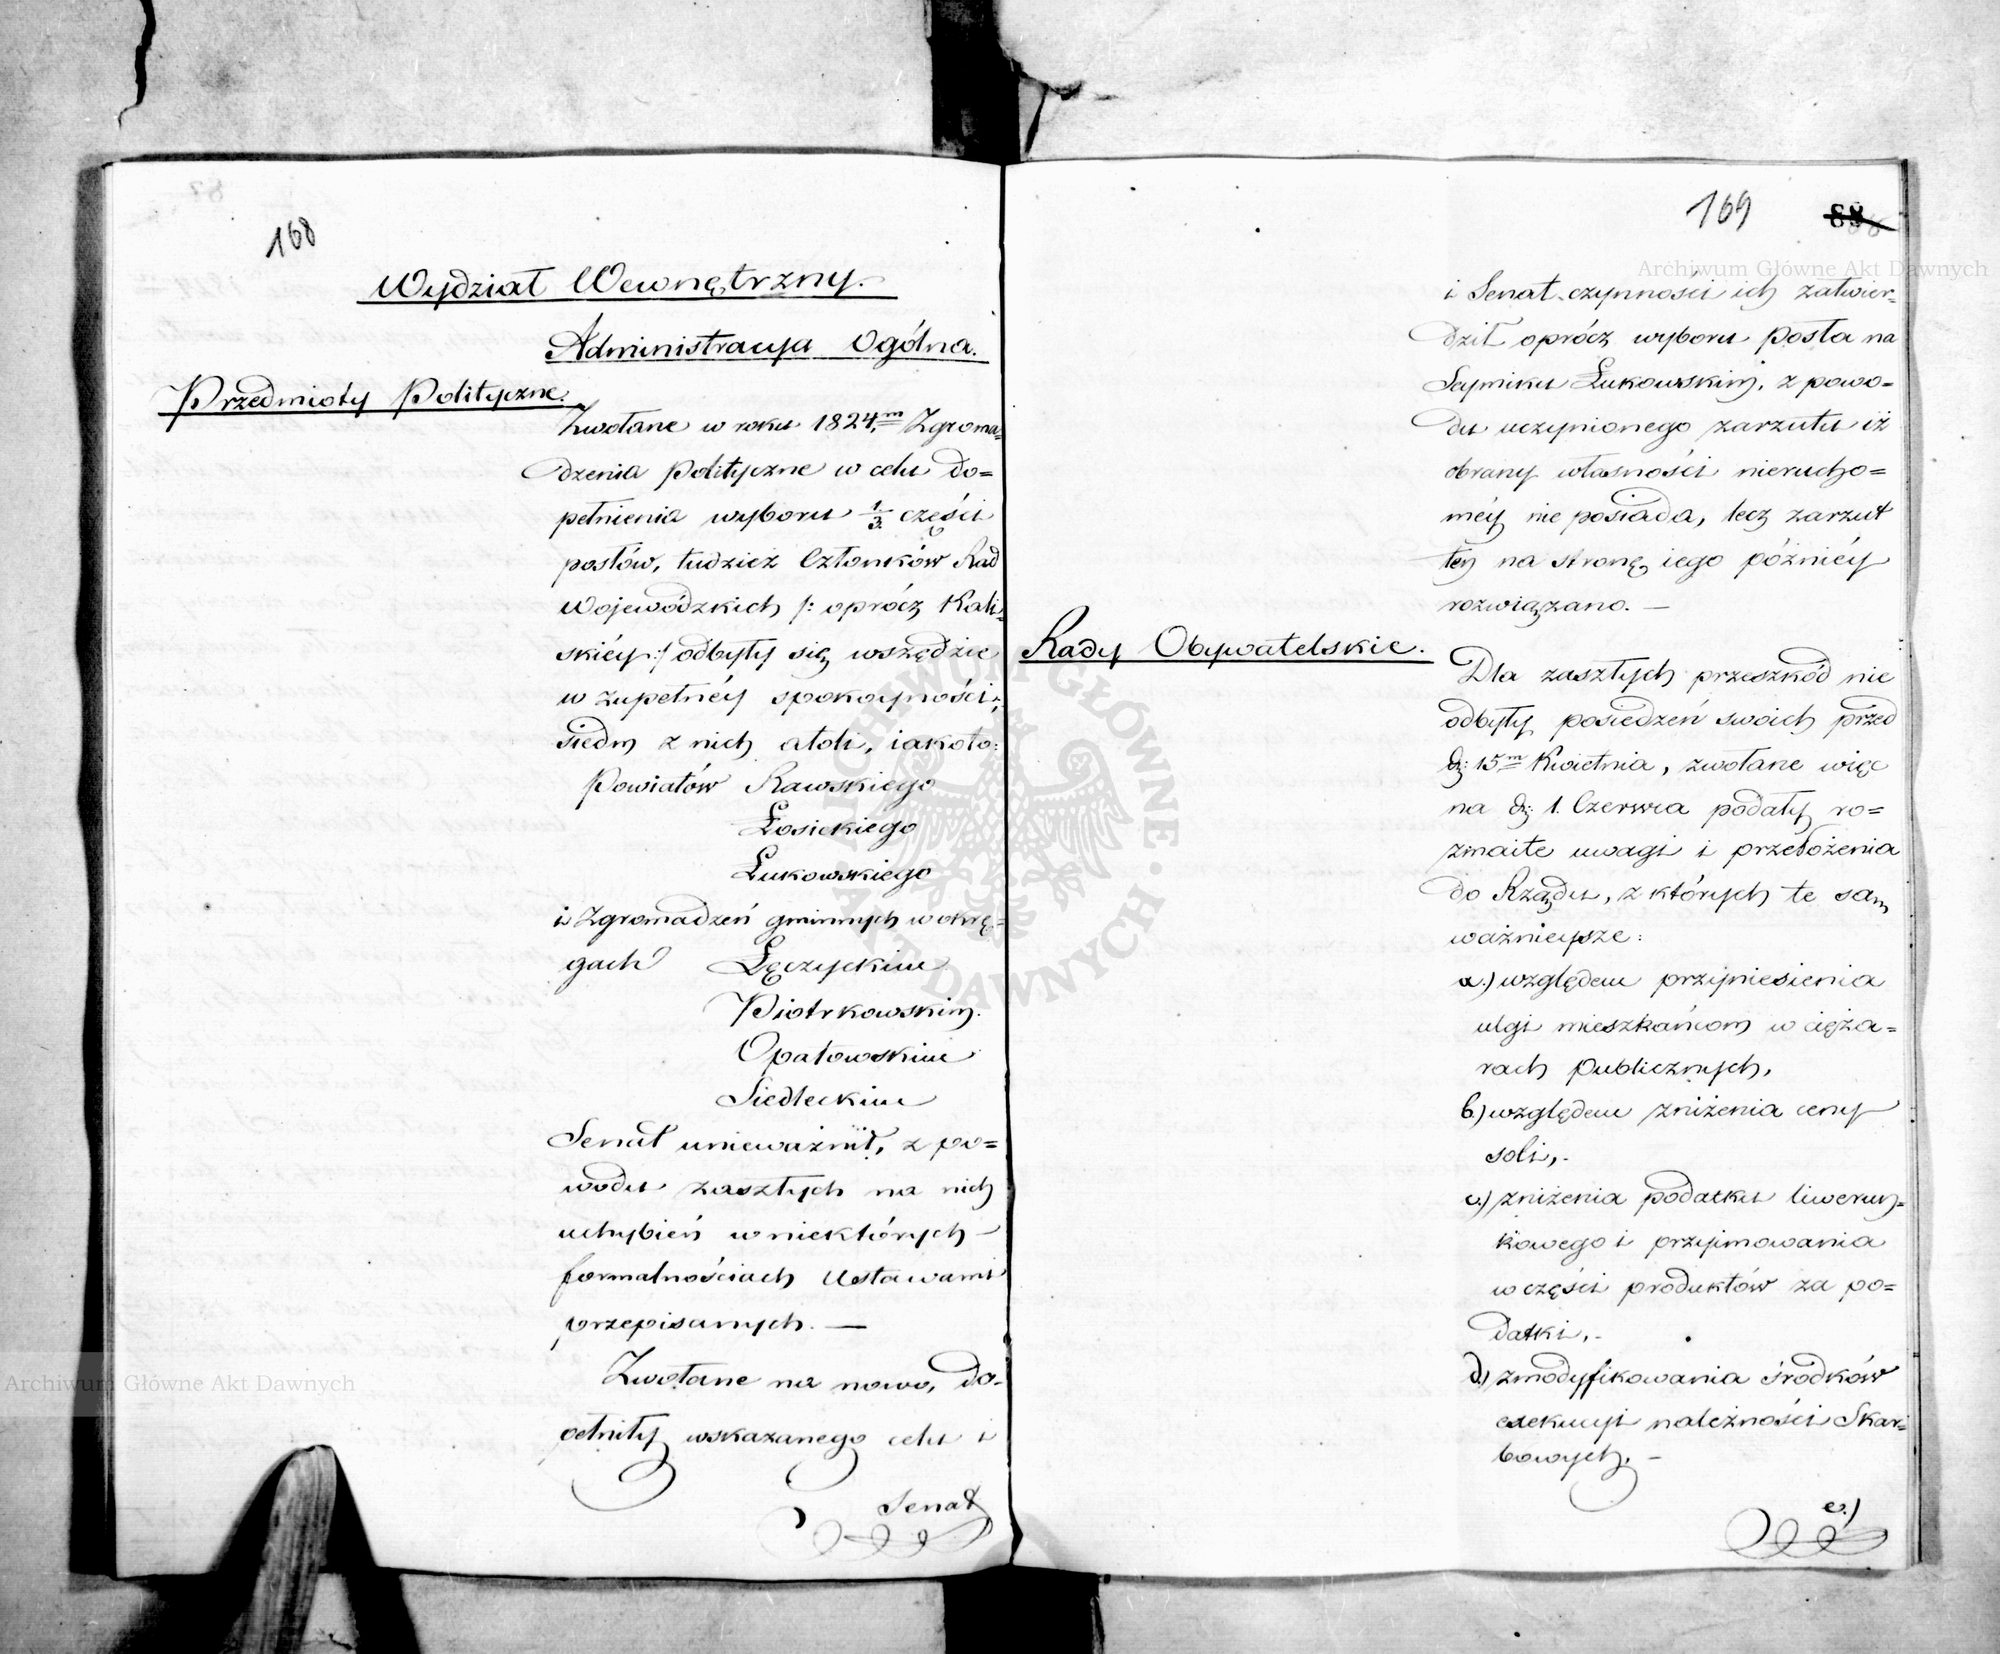 168
Wydział Wewnętrzny.
Administracya Ogólna.
Przedmioty Polityczne.
Zwołane w roku 1824.m Zgroma=
dzenia polityczne w celu do=
pełnienia wyboru 1/3 części
posłów, tudzież Członków Rad
Wojewódzkich /: oprócz Kali=
skiéy :/ odbyły się wszędzie
w zupełnéy spokoyności;
siedm z nich atoli, iakoto:
Powiatów Rawskiego
Łosickiego
Łukowskiego
i Zgromadzeń gminnych w okrę=
gach Łęczyckim
Piotrkowskim.
Opatowskim
Siedleckim
Senat unieważnił, z po=
wodu zaszłych na nich
uchybień w niektórych
formalnościach Ustawami
przepisanych. —
Zwołane na nowo, do-
pełniły wskazanego celu i
Senat
169
88
i Senat czynności ich zatwier=
dził oprócz wyboru posła na
Seymiku Łukowskim, z powo=
du uczynionego zarzutu iż
obrany własności nierucho=
méy nie posiada, lecz zarzut
ten na stronę iego późniéy
rozwiązano. —
Rady Obywatelskie.
Dla zaszłych przeszkód nie
odbyły posiedzeń swoich przed
dz: 15m Kwietnia, zwołane więc
na dz: 1. Czerwca podały ro=
zmaite uwagi i przełożenia
do Rządu, z których te są
ważnieysze:
a.) względem przyniesienia
ulgi mieszkańcom w cięża=
rach publicznych,
b.) względem zniżenia ceny
soli,.
c.) zniżenia podatku liwerun=
kowego i przyimowania
w części produktów za po=
datki,.
d.) zmodyfikowania środków
exekucyi należności Skar=
bowych. —
e.)
Archiwum Główne Akt Dawnych
Archiwum Główne Akt Dawnych
ARCHIWUM GŁÓWNE AKT DAWNYCH